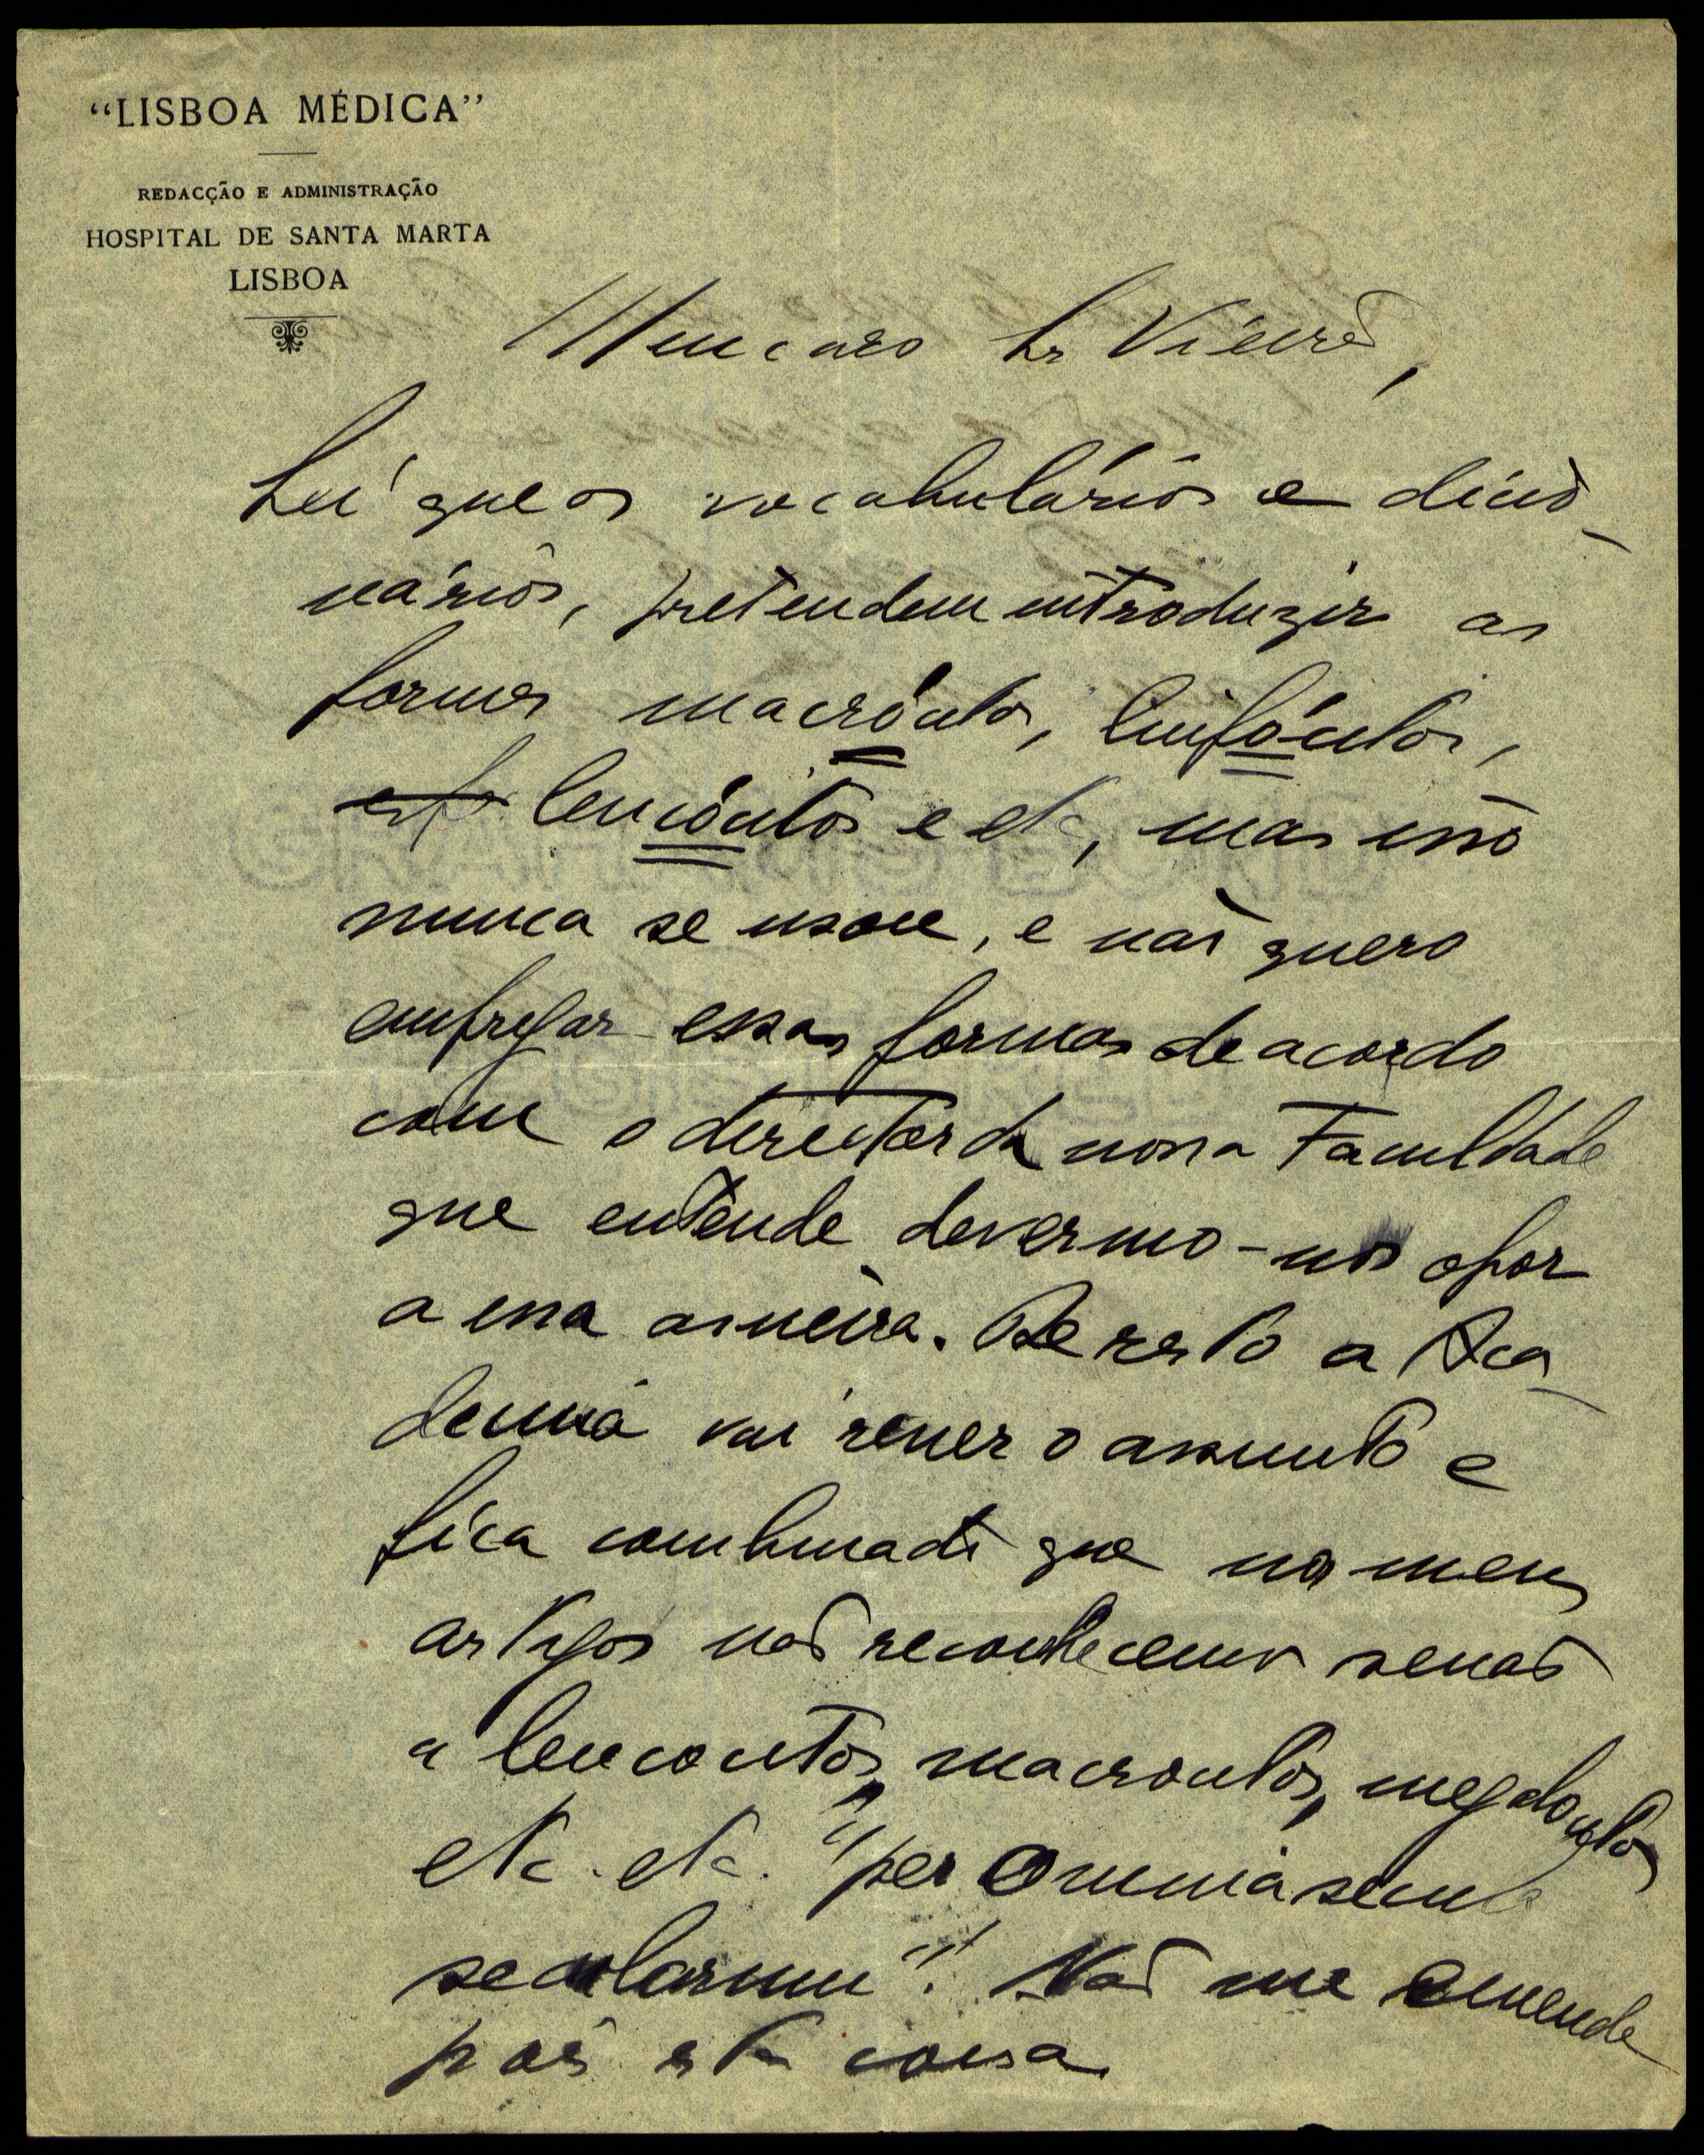 “LISBOA MÉDICA”
REDACÇÃO E ADMINISTRAÇÃO
HOSPITAL DE SANTA MARTA
LISBOA
Meu caro Sr Vieira,
Sei que os vocabulários e dicio-
nários, pretendem introduzir as
formas macrócitos, linfócitos,
leucócitos e etc, mas isso
nunca se usou, e não quero
empregar essas formas de acordo
com o director da nossa Faculdade
que entende devermo-nos opor
a essa asneira. De resto a Aca-
demia vai rever o assunto e
fica combinado que nos meus
artigos não reconhecemos senão
a leucocitos, macrocitos, megalocitos
etc. etc. "per omnia secula
secularum". Não me emende
pois esta coisa